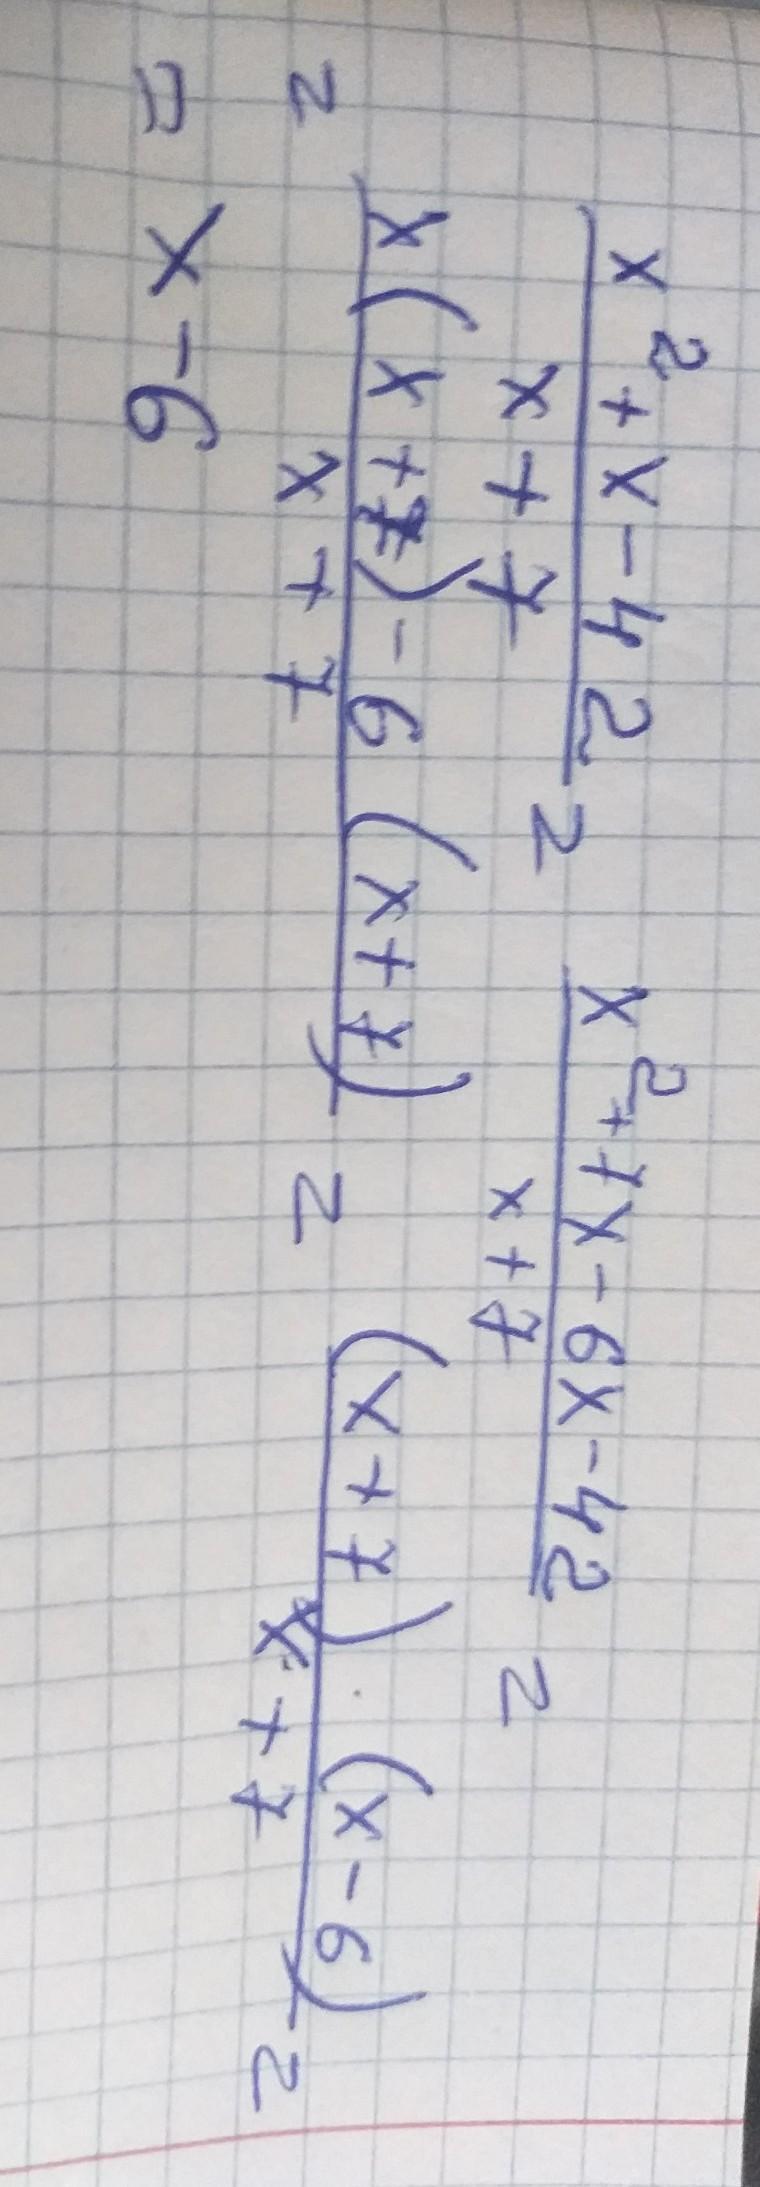 x² + x - 42 / x + 7 = x² + 7x - 6x - 42 / x + 7 =
= x(x + 7) - 6(x + 7) / x + 7 = (x + 7) · (x - 6) / x + 7 =
= x - 6